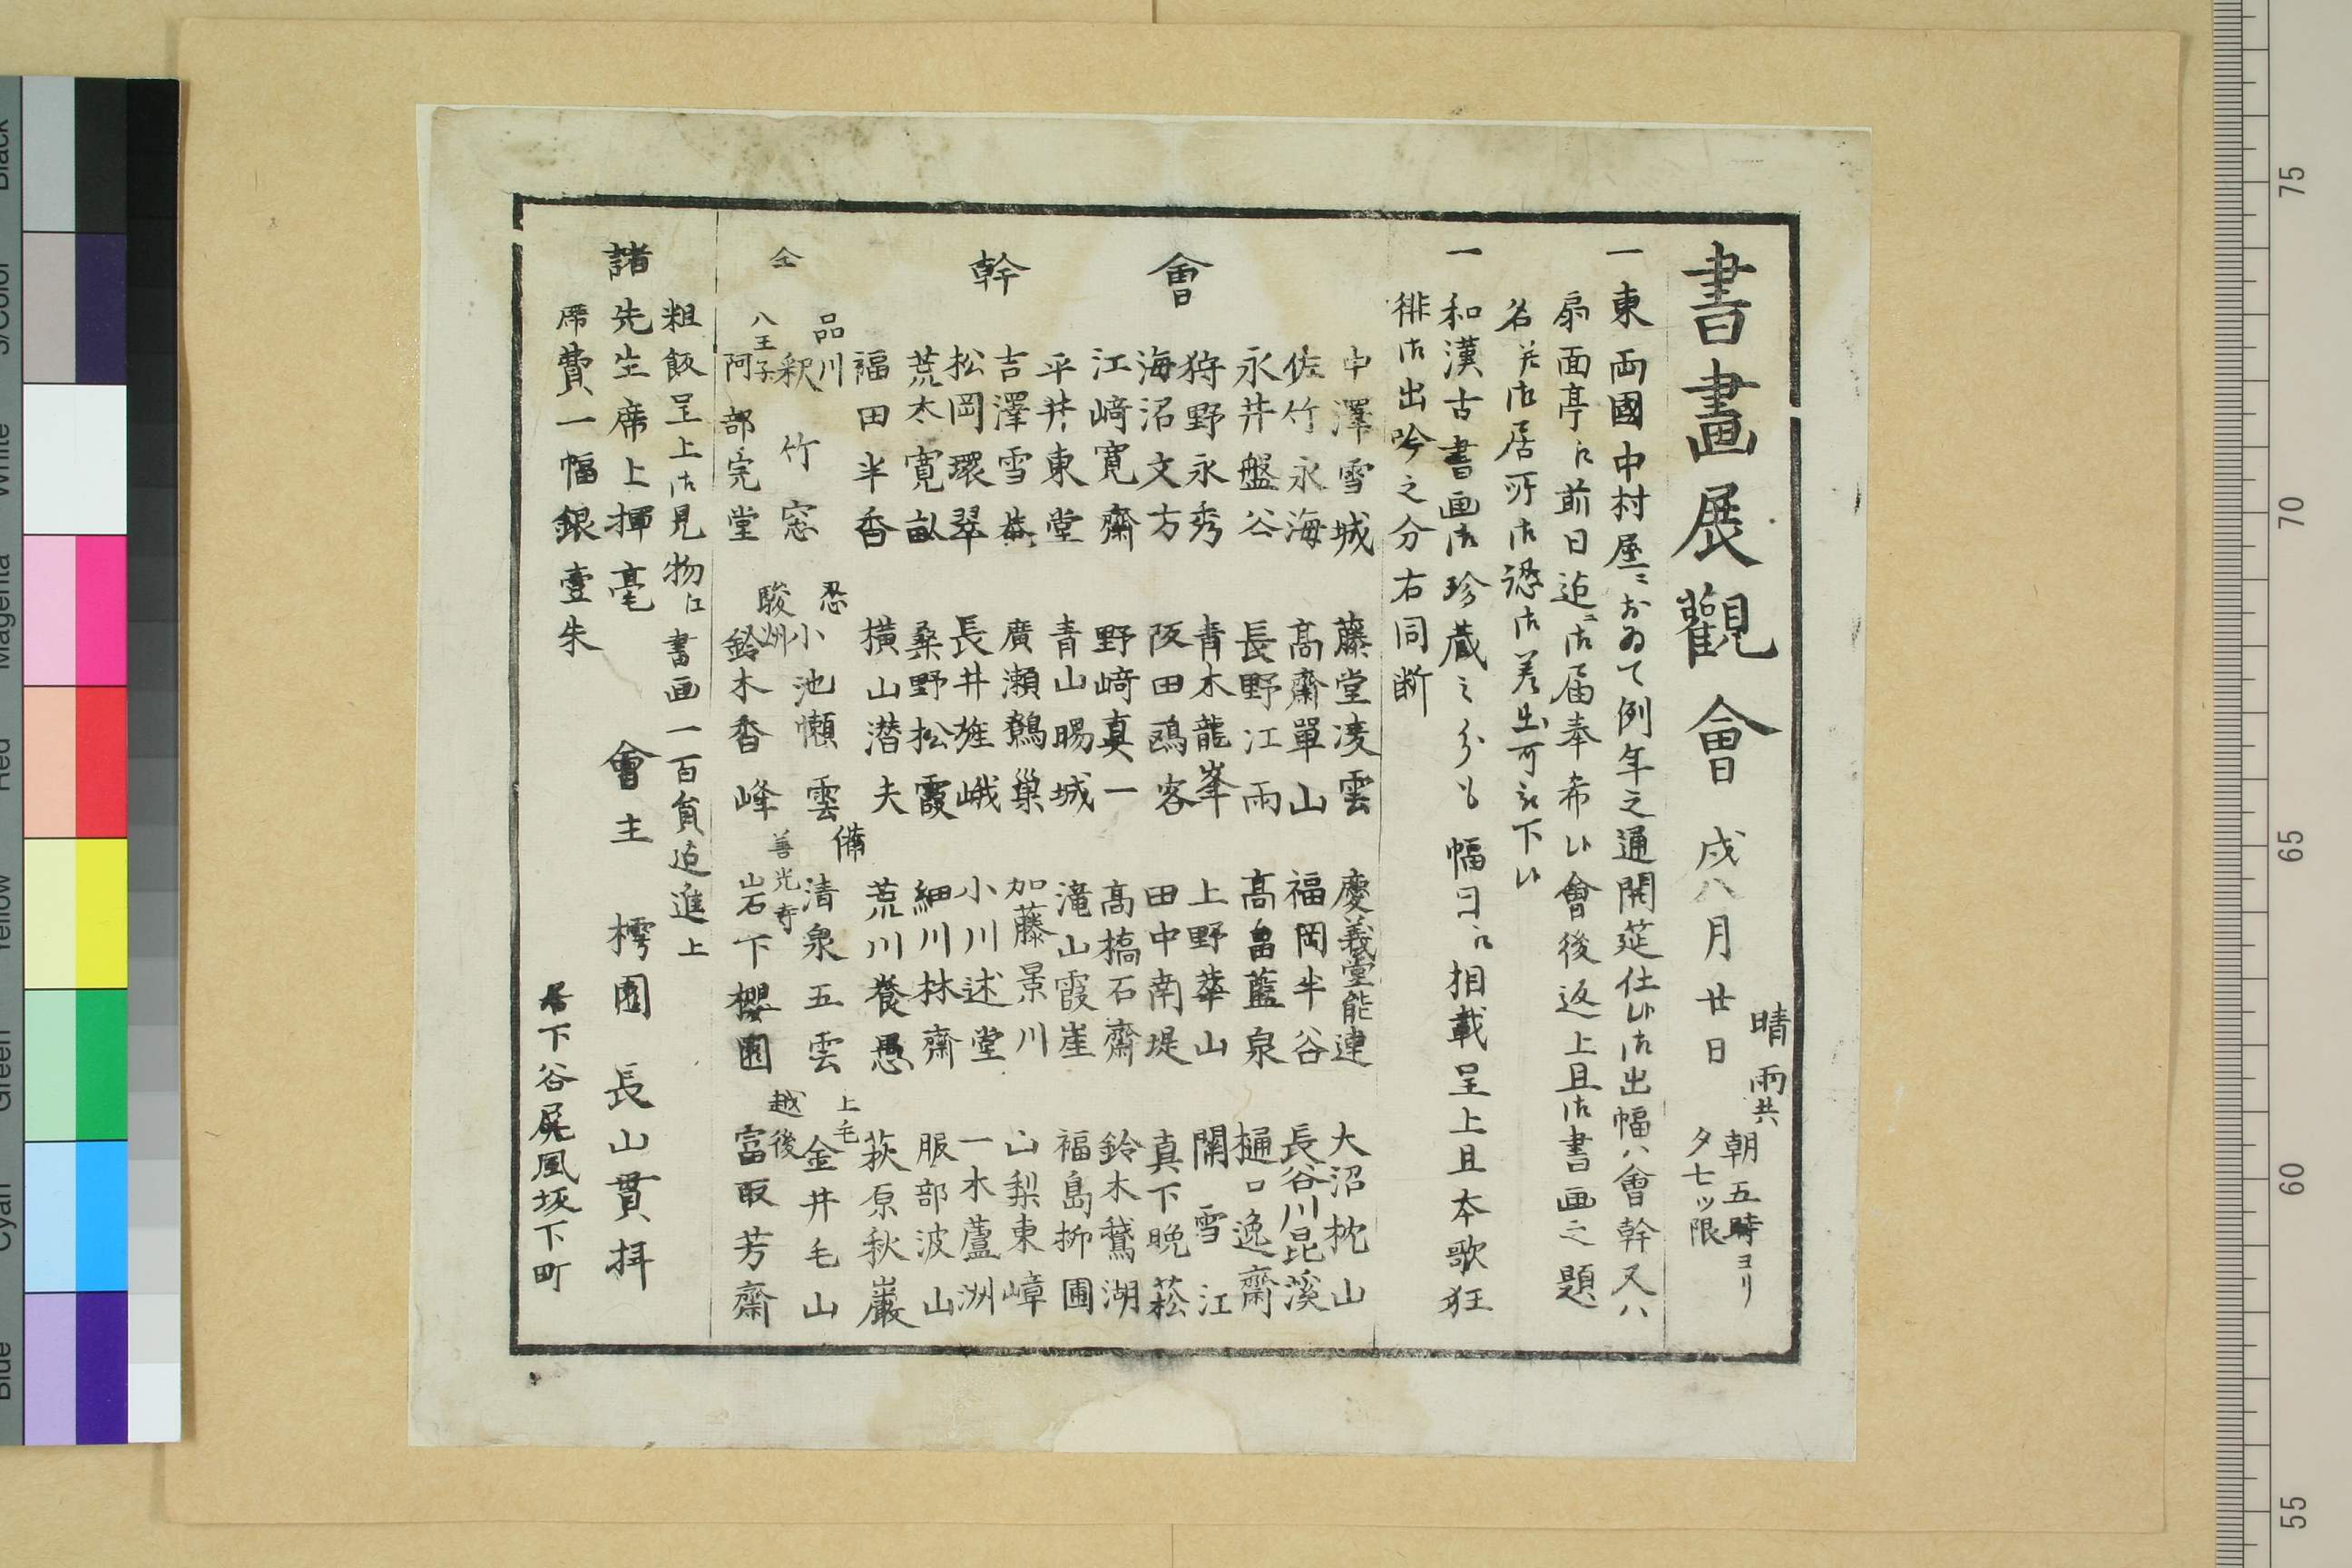 書畫展觀會 戌八月廿日
晴雨共
朝五時ヨリ
夕七ッ限
一東両國中村屋ニおゐて例年之通開莚仕候御出幅ハ會幹又ハ
扇面亭江前日迠ニ御届奉希候會後返上且御書画之題
名并御居所御認御差出可被下候
一和漢古書画御珍蔵之分も幅同江相載呈上且本歌狂
徘御出吟之分右同断
會幹
中澤雪城 藤堂凌雲 慶義堂能連 大沼枕山
佐竹永海 髙齋單山 福岡半谷 長谷川昆溪
永井盤谷 長野江雨 髙畠藍泉 樋口逸齋
狩野永秀 青木龍峯 上野華山 關雪江
海沼文方 阪田鴎客 田中南堤 真下晩菘
江﨑寛齋 野﨑真一 髙橋石齋 鈴木鵞湖
平井東堂 青山暘城 滝山霞崖 福島柳圃
吉澤雪菴 廣瀬鷦巢 加藤景川 山梨東嶂
松岡環翠 長井旌峨 小川述堂 一木蘆洲
荒木寛畝 桑野松霞 細川林齋 服部波山
福田半香 横山潜夫 荒川養愚 萩原秋巖
仝
品川 釈竹窓 忍 小池懶雲 備 清泉五雲 上毛 金井毛山
八王子 阿部完堂 駿州 鈴木香峰 善光寺 山石下櫻園 越後 富取芳齋
粗飯呈上御見物江書画一百負迠進上
諸先生席上揮毫 會主 樗園 長山貫拝
席費一幅銀壹朱
居下谷屏風坂下町
Black
3/Color
White
Magenta
Red
Yellow
Green
Cyan
Blue
75
70
65
60
55